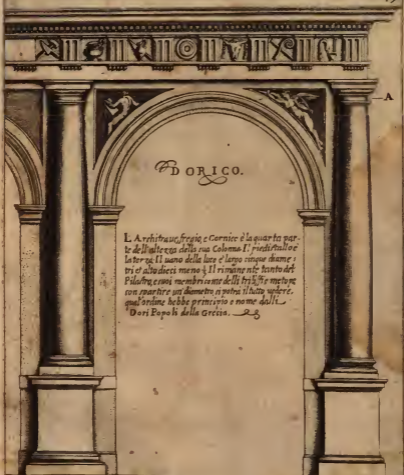 A
DORICO.
L Architraue, fregio, e Cornice è la quarta par-
te dell'altezza della sua Colonna. Il piedistallo è
la terza. Il uano della luce è largo cinque diame:
tri et alto dieci meno ½. Il rimanente tanto del
Pilastro, e suoi membri come delli triglifi e metope
con spartire un diametro si potrà il tutto uedere.
qual'ordine hebbe principio e nome dalli
Dori Popoli della Grecia.